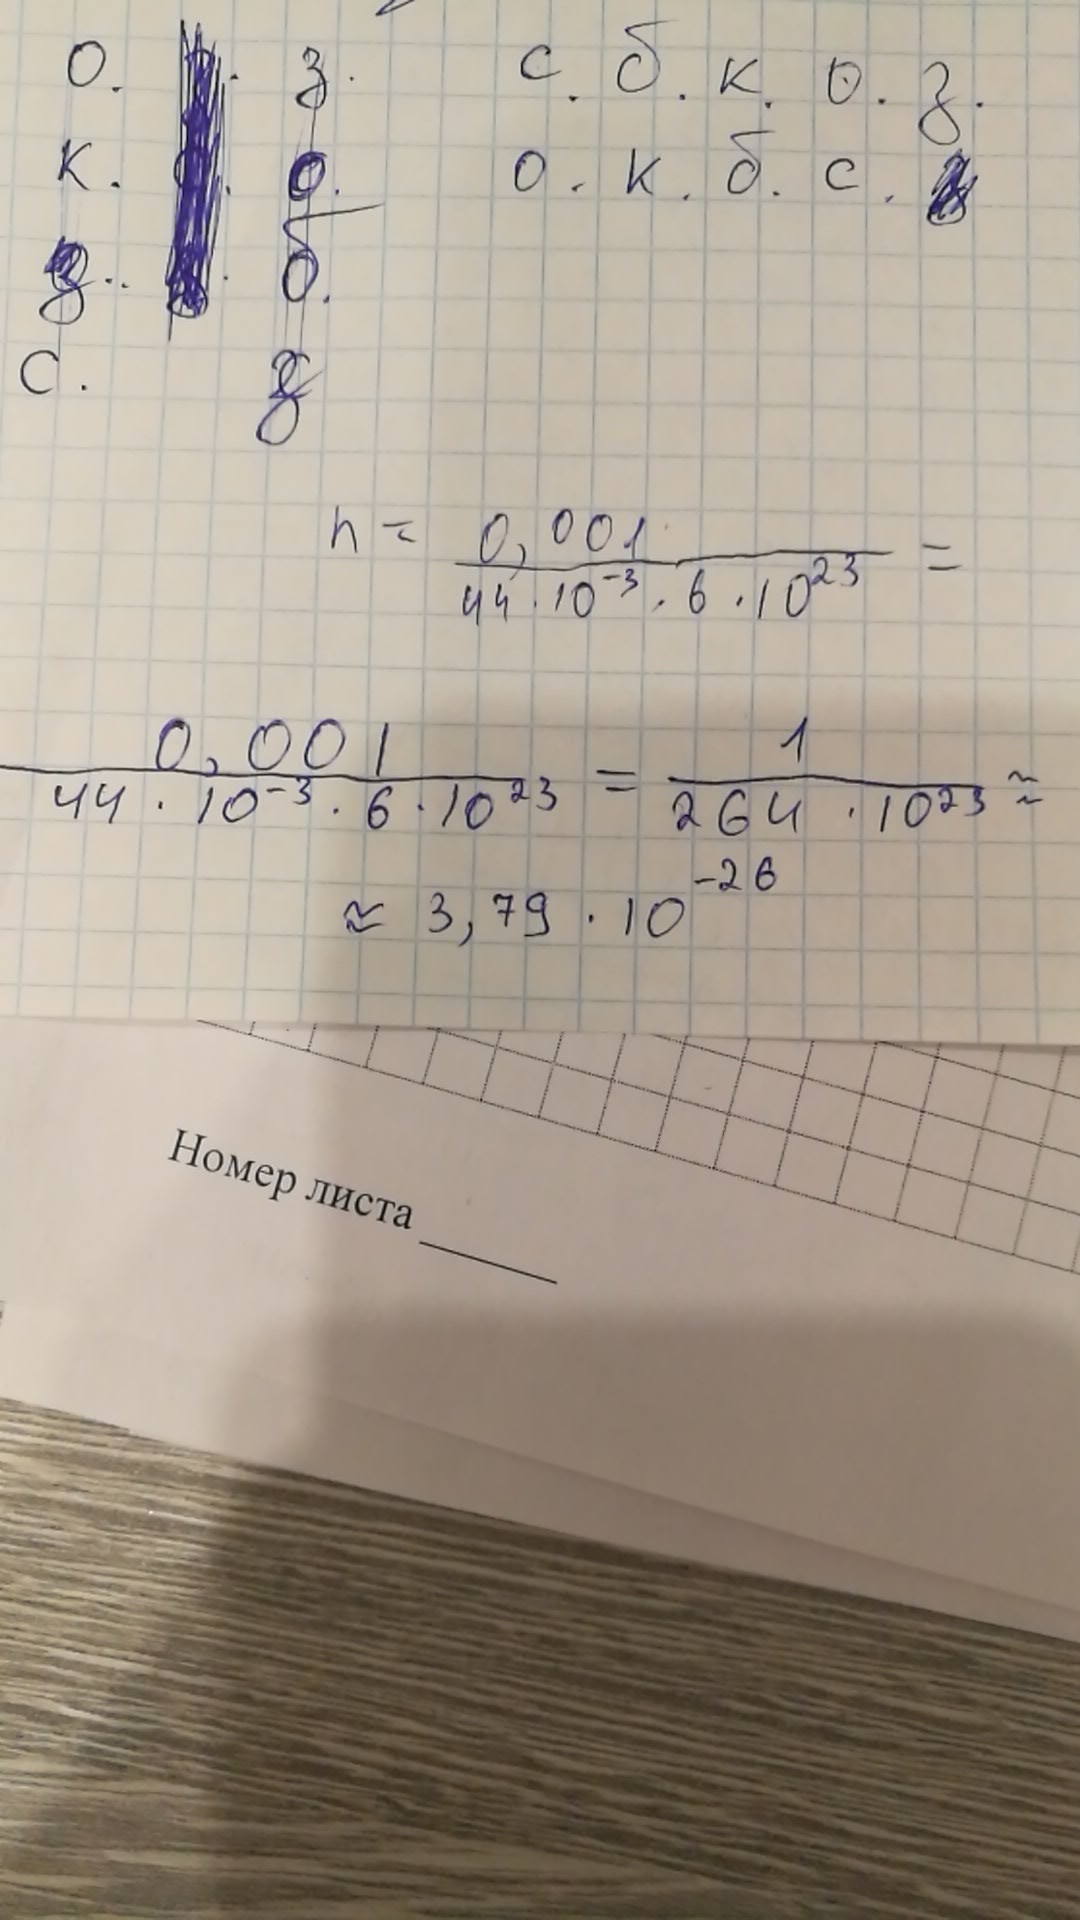 о. з. с. б. к. о. з.
к. о. о. к. б. с.
з.. б.
с. з
n = 0,001 / 44 · 10⁻³ · 6 · 10²³ =
0,001 / 44 · 10⁻³ · 6 · 10²³ = 1 / 264 · 10²³ ≈
≈ 3,79 · 10⁻²⁶
Номер листа ____